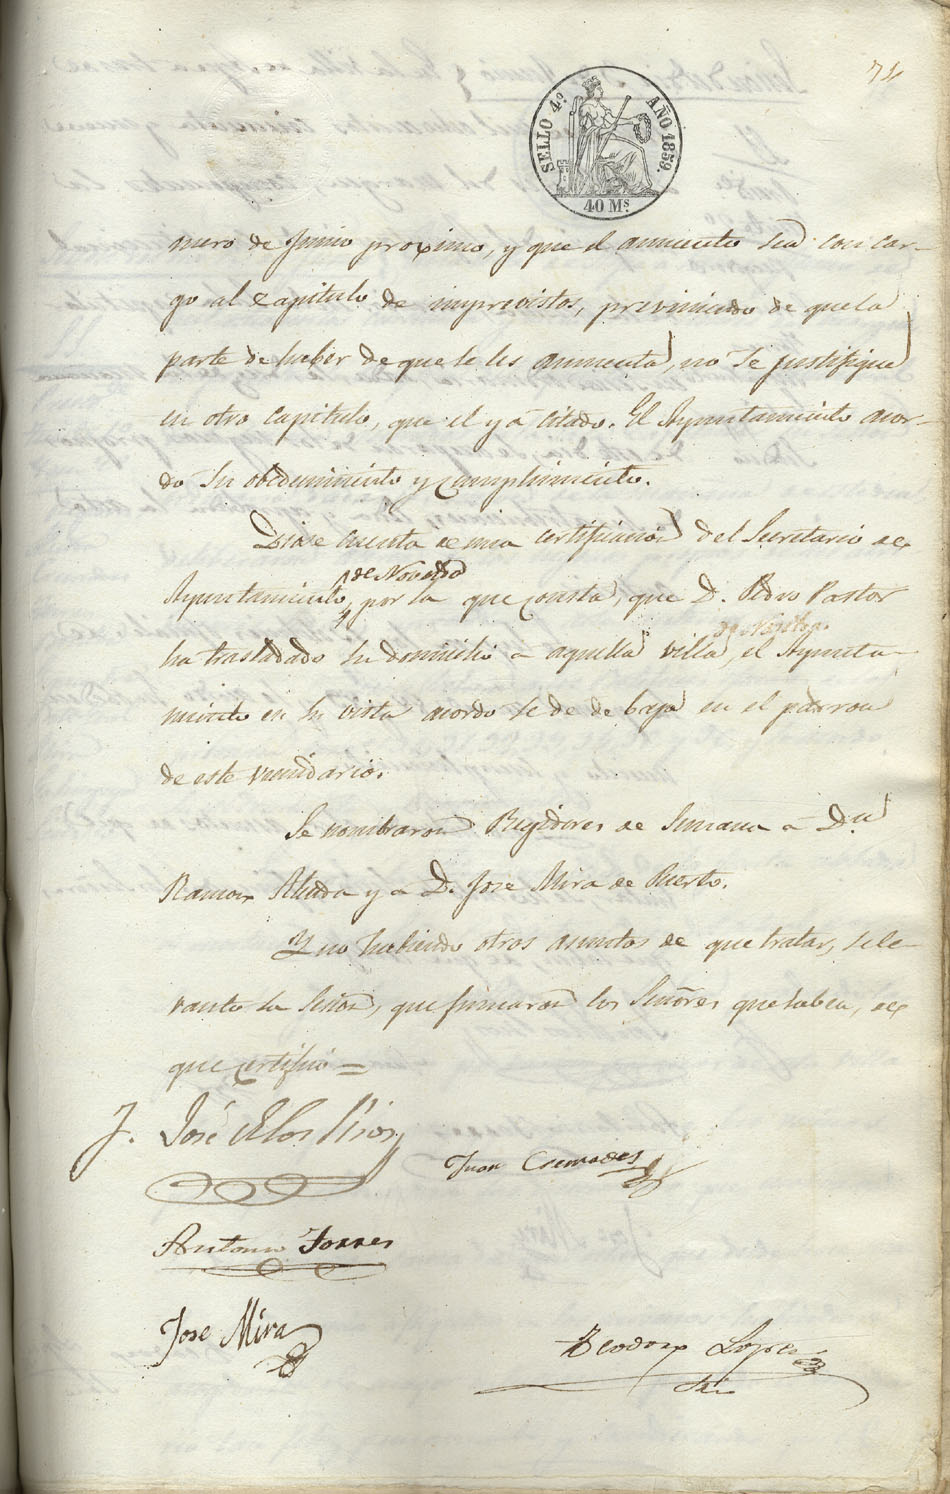 74
SELLO 4º AÑO 1859.
40 Ms.
mero de Junio proximo, y que el aumento sea con car-
go al Capitulo de imprevistos, previniendo de que la
parte de haber de que se les aumenta, no se justifique
en otro Capitulo, que el yá citado. El Ayuntamiento acor-
do su obedecimiento y cumplimiento.
Diose cuenta de una certificacion del Secretario de
de Novelda
Ayuntamiento, por la que consta, que D. Pedro Pastor
ha trasladado su domicilio a aquella villa, el Ayunta-
miento en su vista acordo se de de baja en el padron
de este vecindario.
Se nombraron Regidores de Semana a Dn
Ramon y a D. Jose Mira de Puerto.
Y no habiendo otros asuntos de que tratar, se le-
vanto la Sesion, que firmaron los Señores que saben, de
que certifico =
José de los Rios
Juan Cremades
Antonio Torres
Jose Mira
Teodoro Lopez
Srio